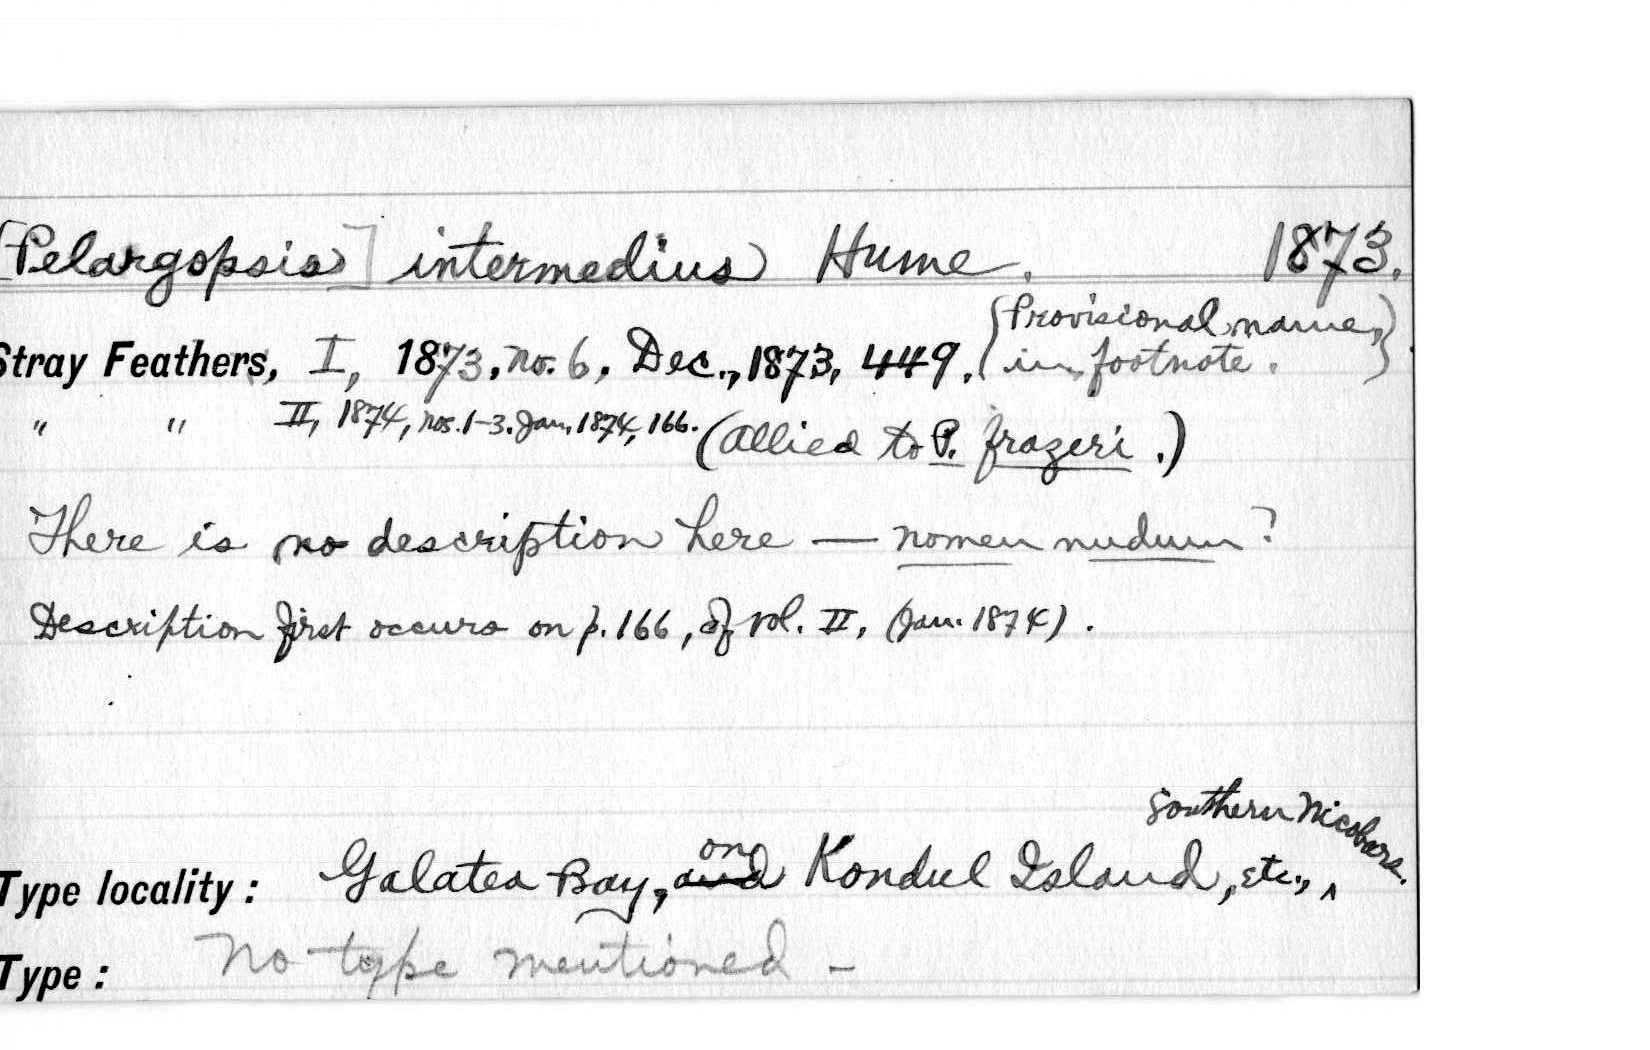 [Pelargopsis] intermedius Hume. 1873.
{Provisional name,
Stray Feathers, I, 1873, no. 6, Dec., 1873, 449. in footnote.}
" " II, 1874, nos. 1-3. Jan. 1874, 166. (allied to P. frazeri.)
There is no description here — nomen nudum?
Description first occurs on p. 166, of vol. II, (Jan. 1874).
Southern Nicobars.
on
Type locality: Galatea Bay, and Kondul Island, etc., ^
Type: No type mentioned -